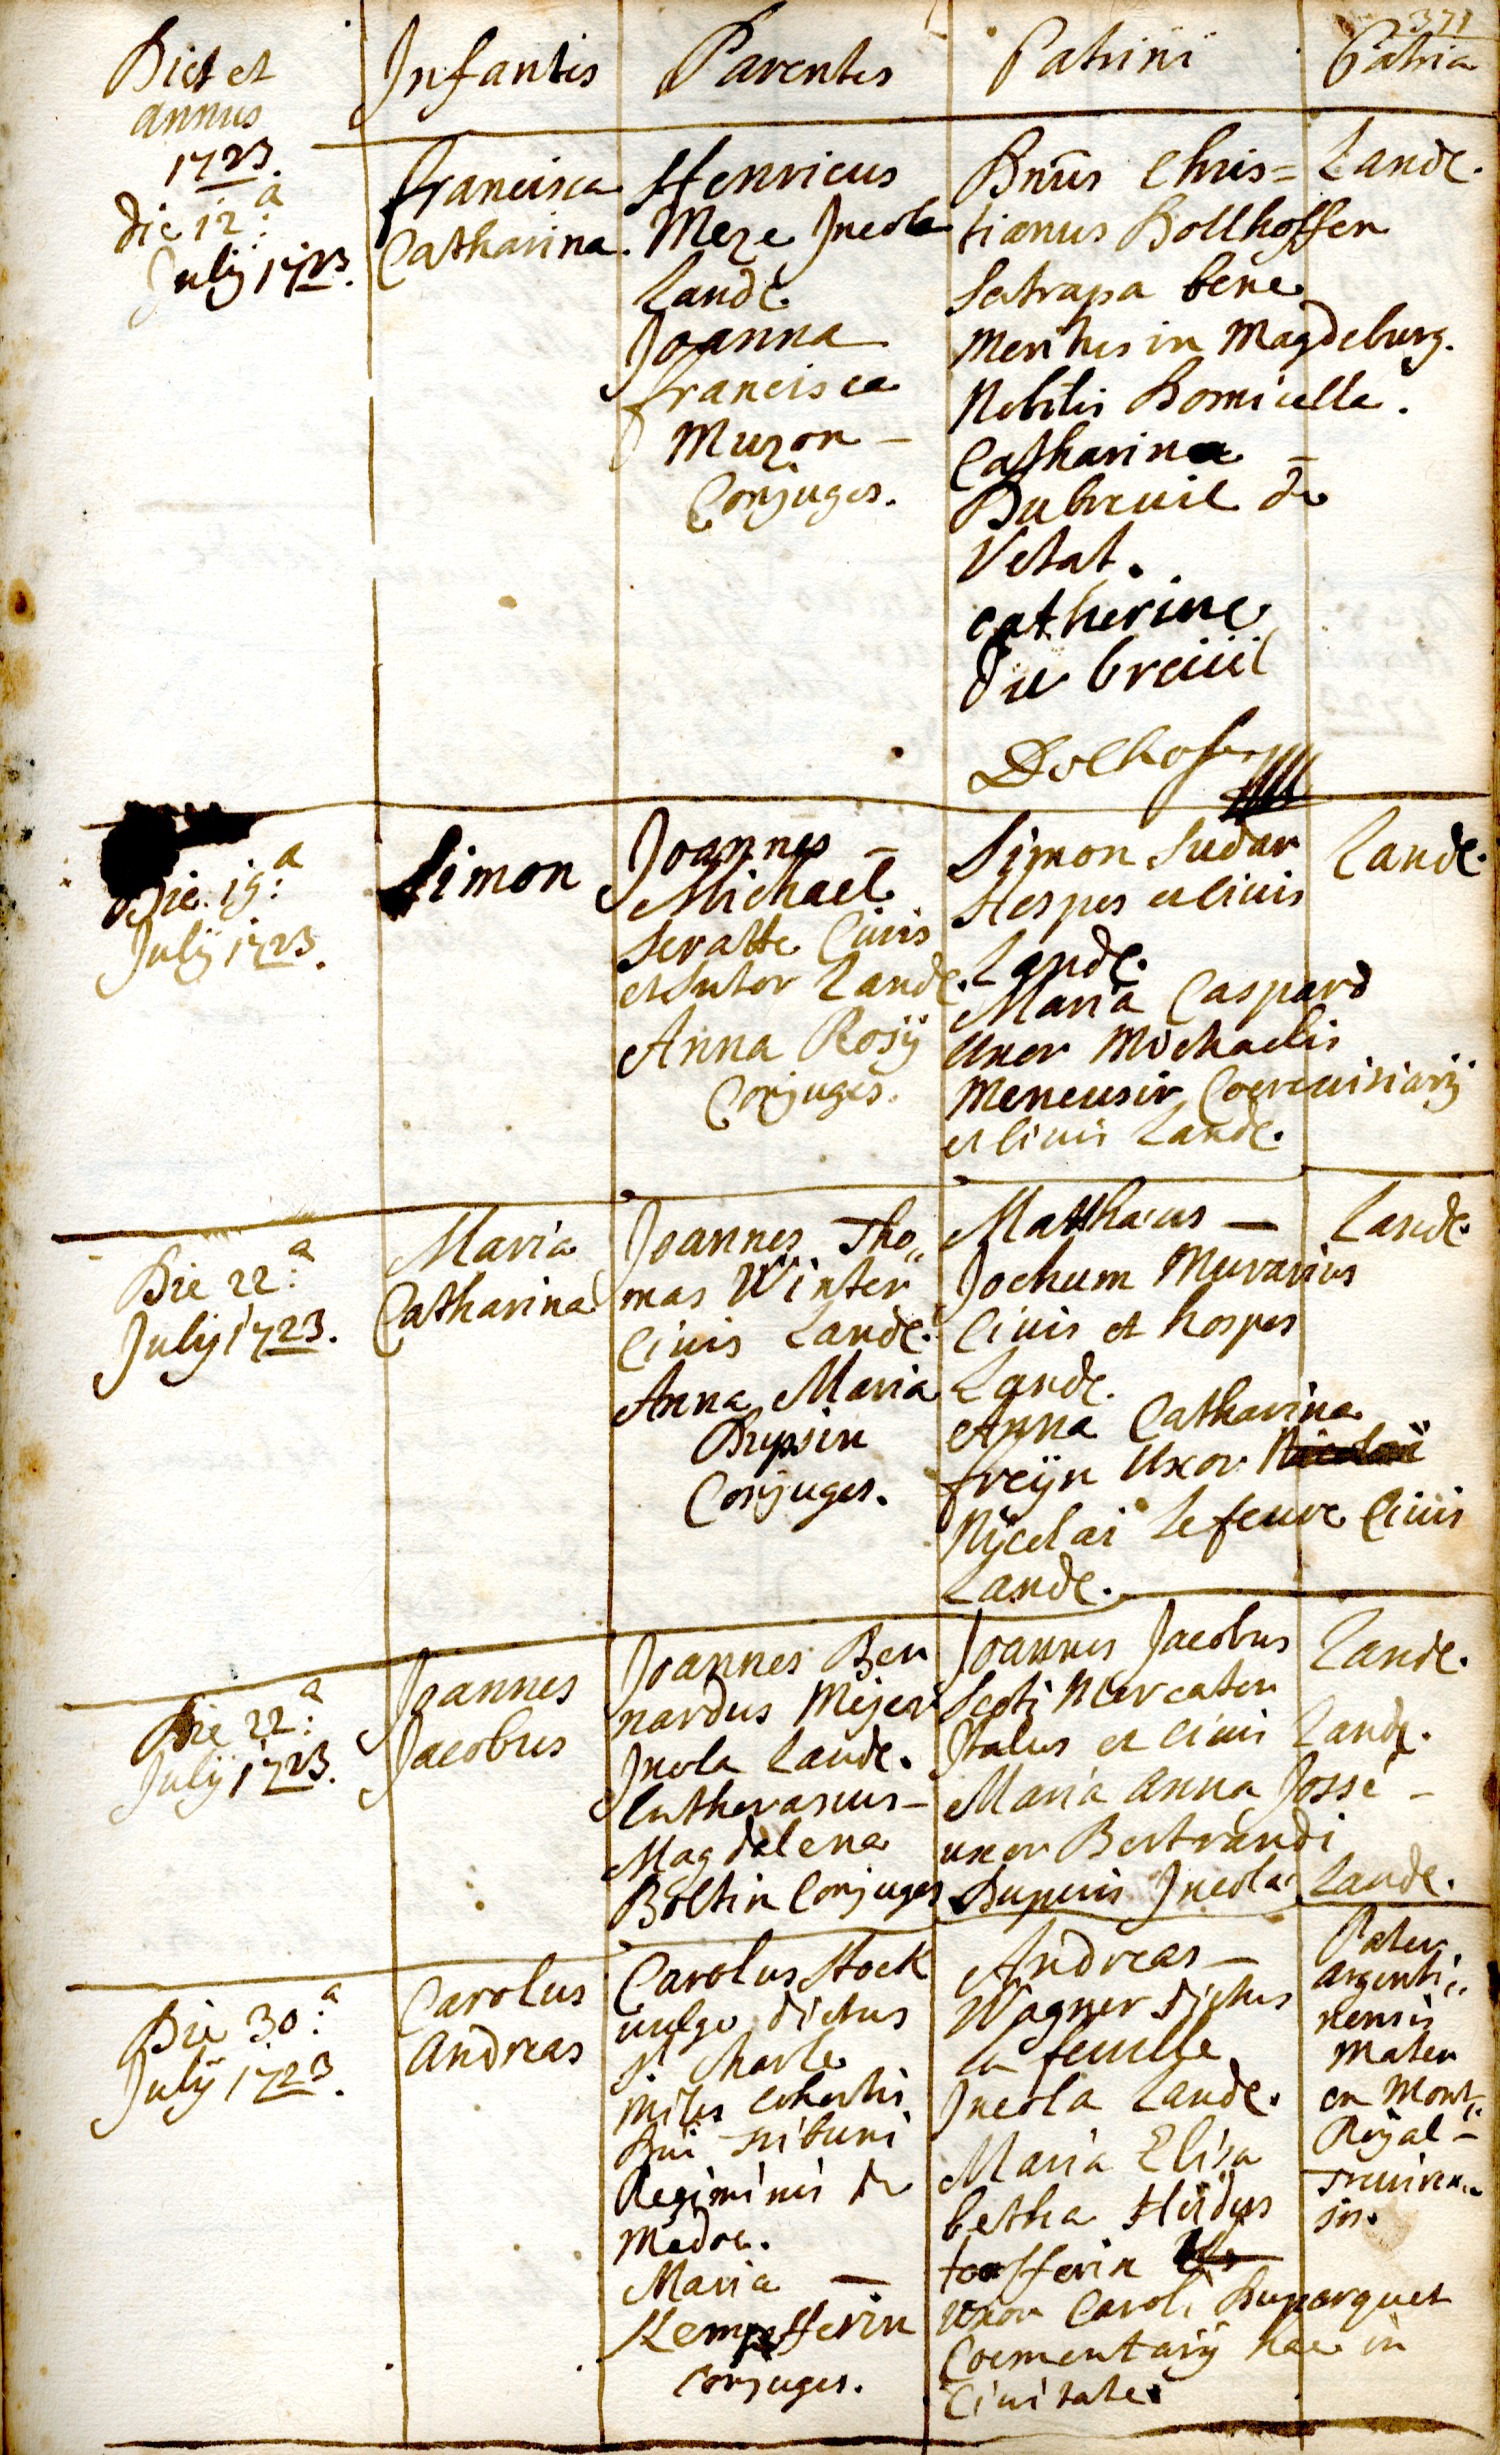 371
Dies et
annus
1723.
Infantis
Parentes
Patrini
Patria
die 12.a
July 1723.
Francisca
Catharina.
Henricus
Meze Incola
Landc.
Joanna
Francisca
Muzon -
Conjuges.
Dnus Chris=
tianus Dollhoffen
Satrapa bene
meritus in Magdeburg.
Nobilis Domicella.
Catharina -
Dubreuil de
Vetat.
catherine
du breüil
Dolhofer
Landc.
Die 19.a
July 1723.
Simon
Joannes -
Michael
Seratte Civis
et Sutor Landc.
Anna Rosÿ
Conjuges.
Simon Sudar
Hospes et civis
Landc.
Maria Caspard
uxor Michaelis
Meneusir Coerevisiarij
et civis Landc.
Landc.
Die 22.a
July 1723.
Maria
Catharina
Joannes Tho„
mas Winter
Civis Landc.
Anna Maria
Conjuges.
Matthaeus —
Jochum Murarius
Civis et hospes
Landc.
Anna Catharina
freÿn Uxor
Nÿcolai Lefeuve Civis
Landc.
Landc.
Die 22.a
July 1723.
Joannes
Jacobus
Joannes Ber
nardus Meÿer
Incola Landc.
Lutheranus -
Magdalena
Boltin Conjuges
Joannes Jacobus
Scoti Mercator
Italus et civis Landc.
Maria Anna Jossé -
uxor Bertrandi
Dupuis Incola Landc.
Landc.
Die 30.a
July 1723.
Carolus
Andreas
Carolus Stock
vulgo dictus
St. Charle
miles cohortis
Dni tribuni
Regiminis de
Medoc.
Maria —
Kempfferin
conjuges.
Andreas —
Wagner dictus
la feuille
Incola Landc.
Maria Elisa
betha
uxor Caroli Duparquet
Coementarÿ hac in
Civitate.
Pater
argenti„
nensis
Mater
ex Mont„
Roÿal -
Treviren„
sis.